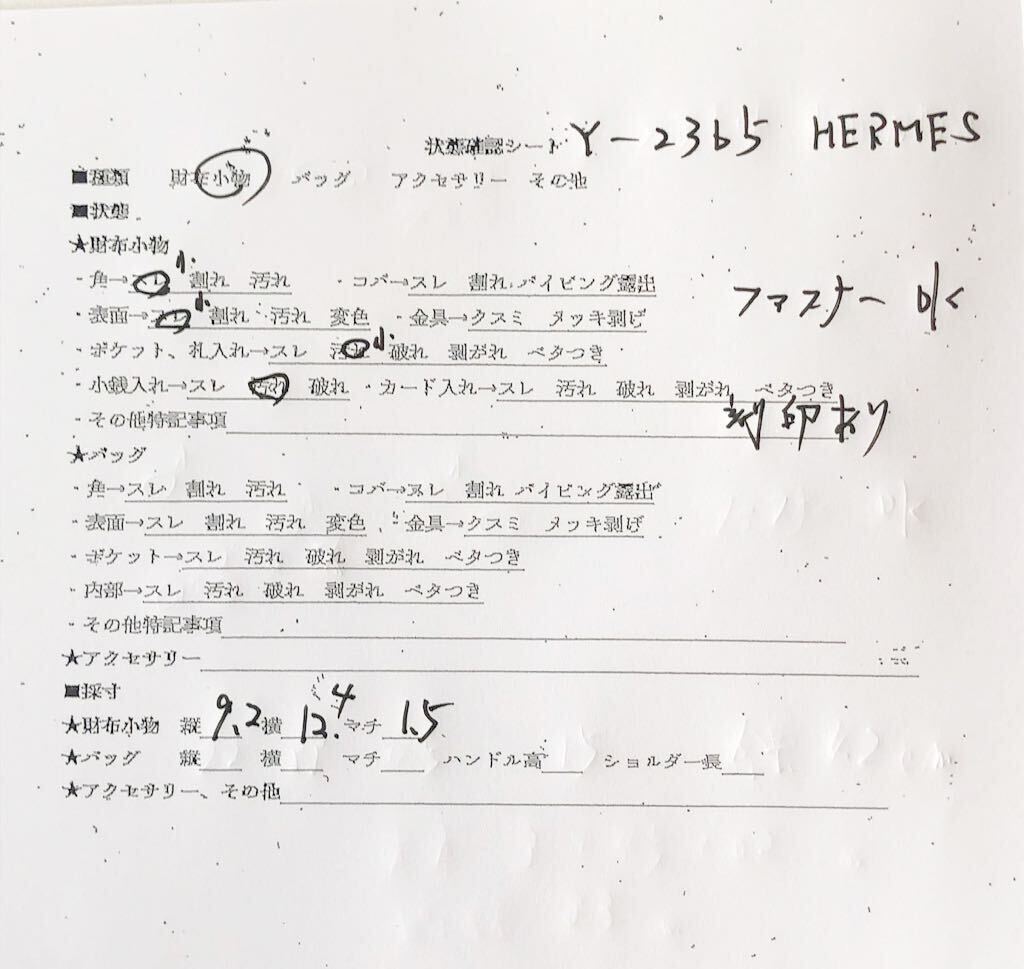 状態確認シート Y-2365 HERMES
■種類 財布小物 バッグ アクセサリー その他
■状態
★財布小物
・角→スレ 小 割れ 汚れ ・コバ→スレ 割れ パイピング露出
・表面→スレ 小 割れ 汚れ 変色 ・金具→クスミ メッキ剥げ
ファスナー ok
・ポケット、札入れ→スレ 汚れ 小 破れ 剥がれ ベタつき
・小銭入れ→スレ 汚れ 破れ ・カード入れ→スレ 汚れ 破れ 剥がれ ベタつき
・その他特記事項 刻印あり
★バッグ
・角→スレ 割れ 汚れ ・コバ→スレ 割れ パイピング露出
・表面→スレ 割れ 汚れ 変色 ・金具→クスミ メッキ剥げ
・ポケット→スレ 汚れ 破れ 剥がれ ベタつき
・内部→スレ 汚れ 破れ 剥がれ ベタつき
・その他特記事項
★アクセサリー
■採寸
★財布小物 縦 9.2 横 12.4 マチ 1.5
★バッグ 縦 横 マチ ハンドル高 ショルダー長
★アクセサリー、その他